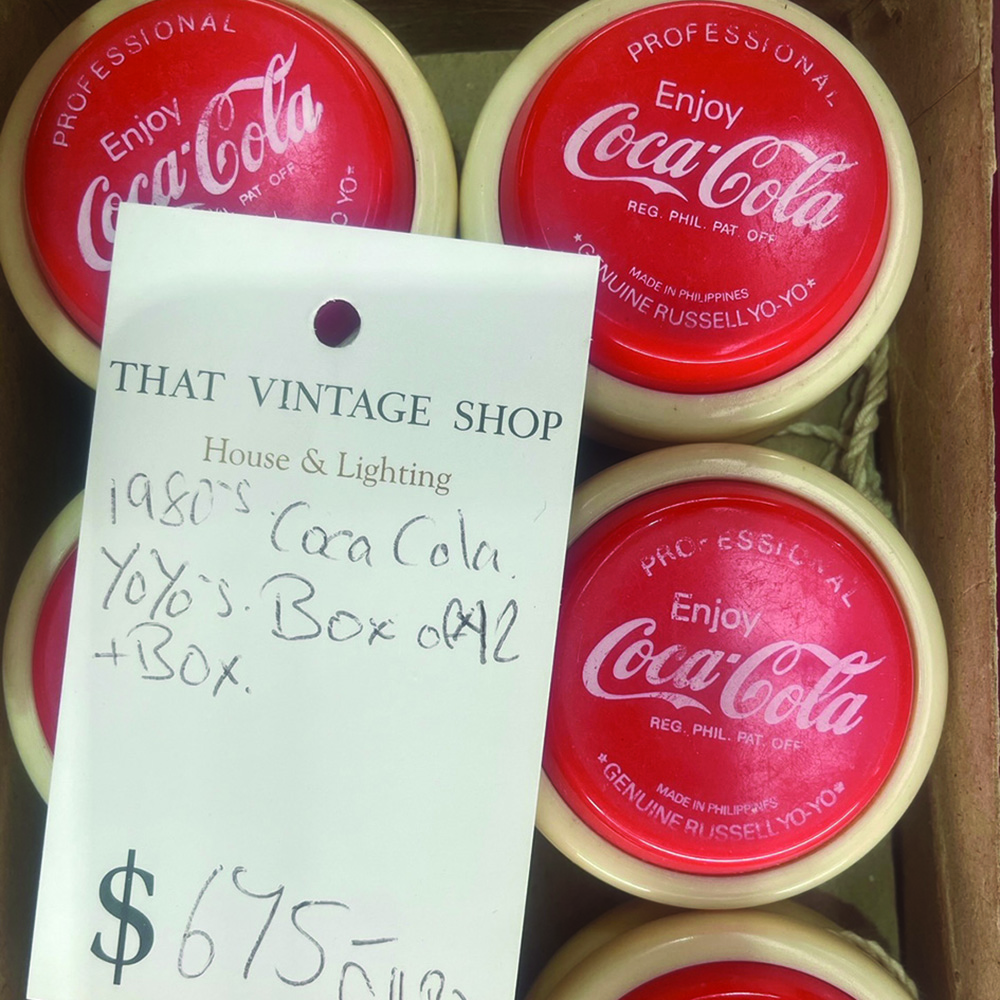 PROFESSIONAL
Enjoy
Coca-Cola
PAT OFF
YO*
PROFESSIONAL
Enjoy
Coca-Cola
REG. PHIL. PAT. OFF
MADE IN PHILIPPINES
*GENUINE RUSSELL YO-YO*
THAT VINTAGE SHOP
House & Lighting
1980's Coca Cola.
YoYo's. Box of 12
+Box.
$675-
PROFESSIONAL
Enjoy
Coca-Cola
REG. PHIL. PAT. OFF
MADE IN PHILIPPINES
*GENUINE RUSSELL YO-YO*